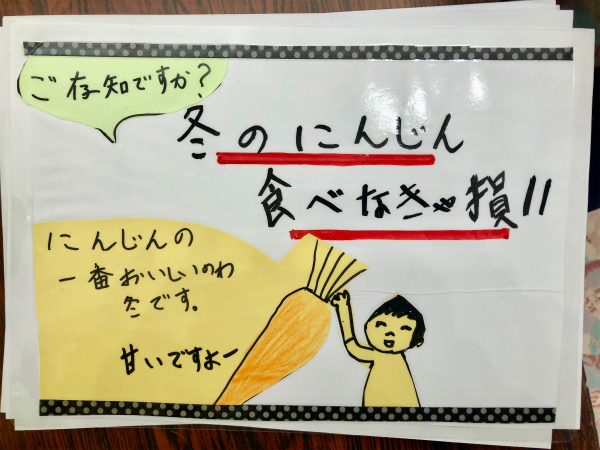 ご存知ですか?
冬のにんじん
食べなきゃ損!!
にんじんの
一番おいしいのわ
冬です。
甘いですよー